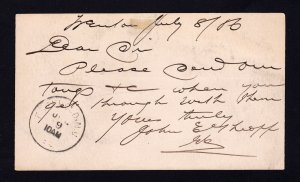 July 8/86
Dear Sir
Please send our
tongs &c when you
get through with them
Yours truly
John
10AM